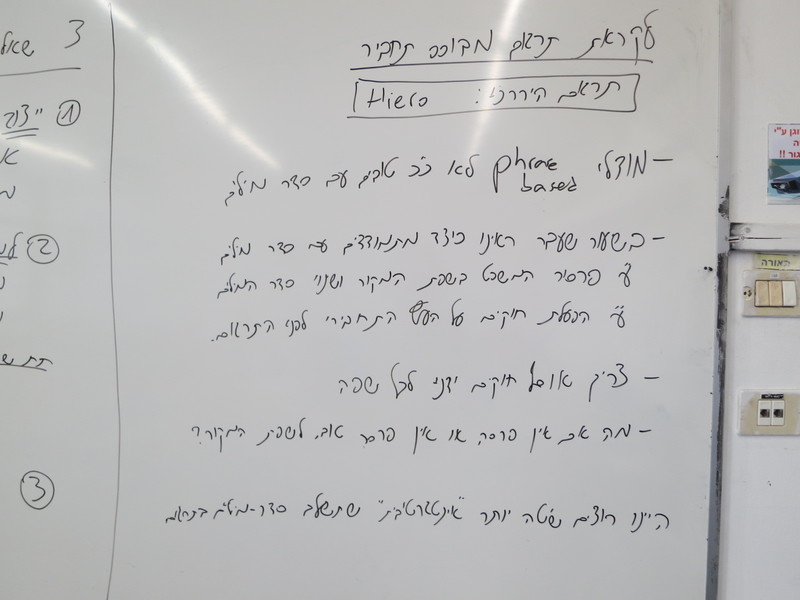 לקראת תרגום מבוסס תחביר
תרגום היררכי: Hiero
- מודלי phrase based לא כ"כ טובים עם סדר מילים
- בשעור שעבר ראינו כיצד מתמודדים עם סדר מילים
ע"י פרסור המשפט בשפת המקור ושנוי סדר המילים
ע"י הפעלת חוקים על העץ התחבירי לפני התרגום.
- צריך אוסף חוקים ידני לכל שפה
- מה אם אין פרסר או אין פרסר טוב לשפת המקור?
היינו רוצים שיטה יותר "אינטגרטיבית" שתשלב סדר-מילים בתרגום
3
1
2
3
האורה